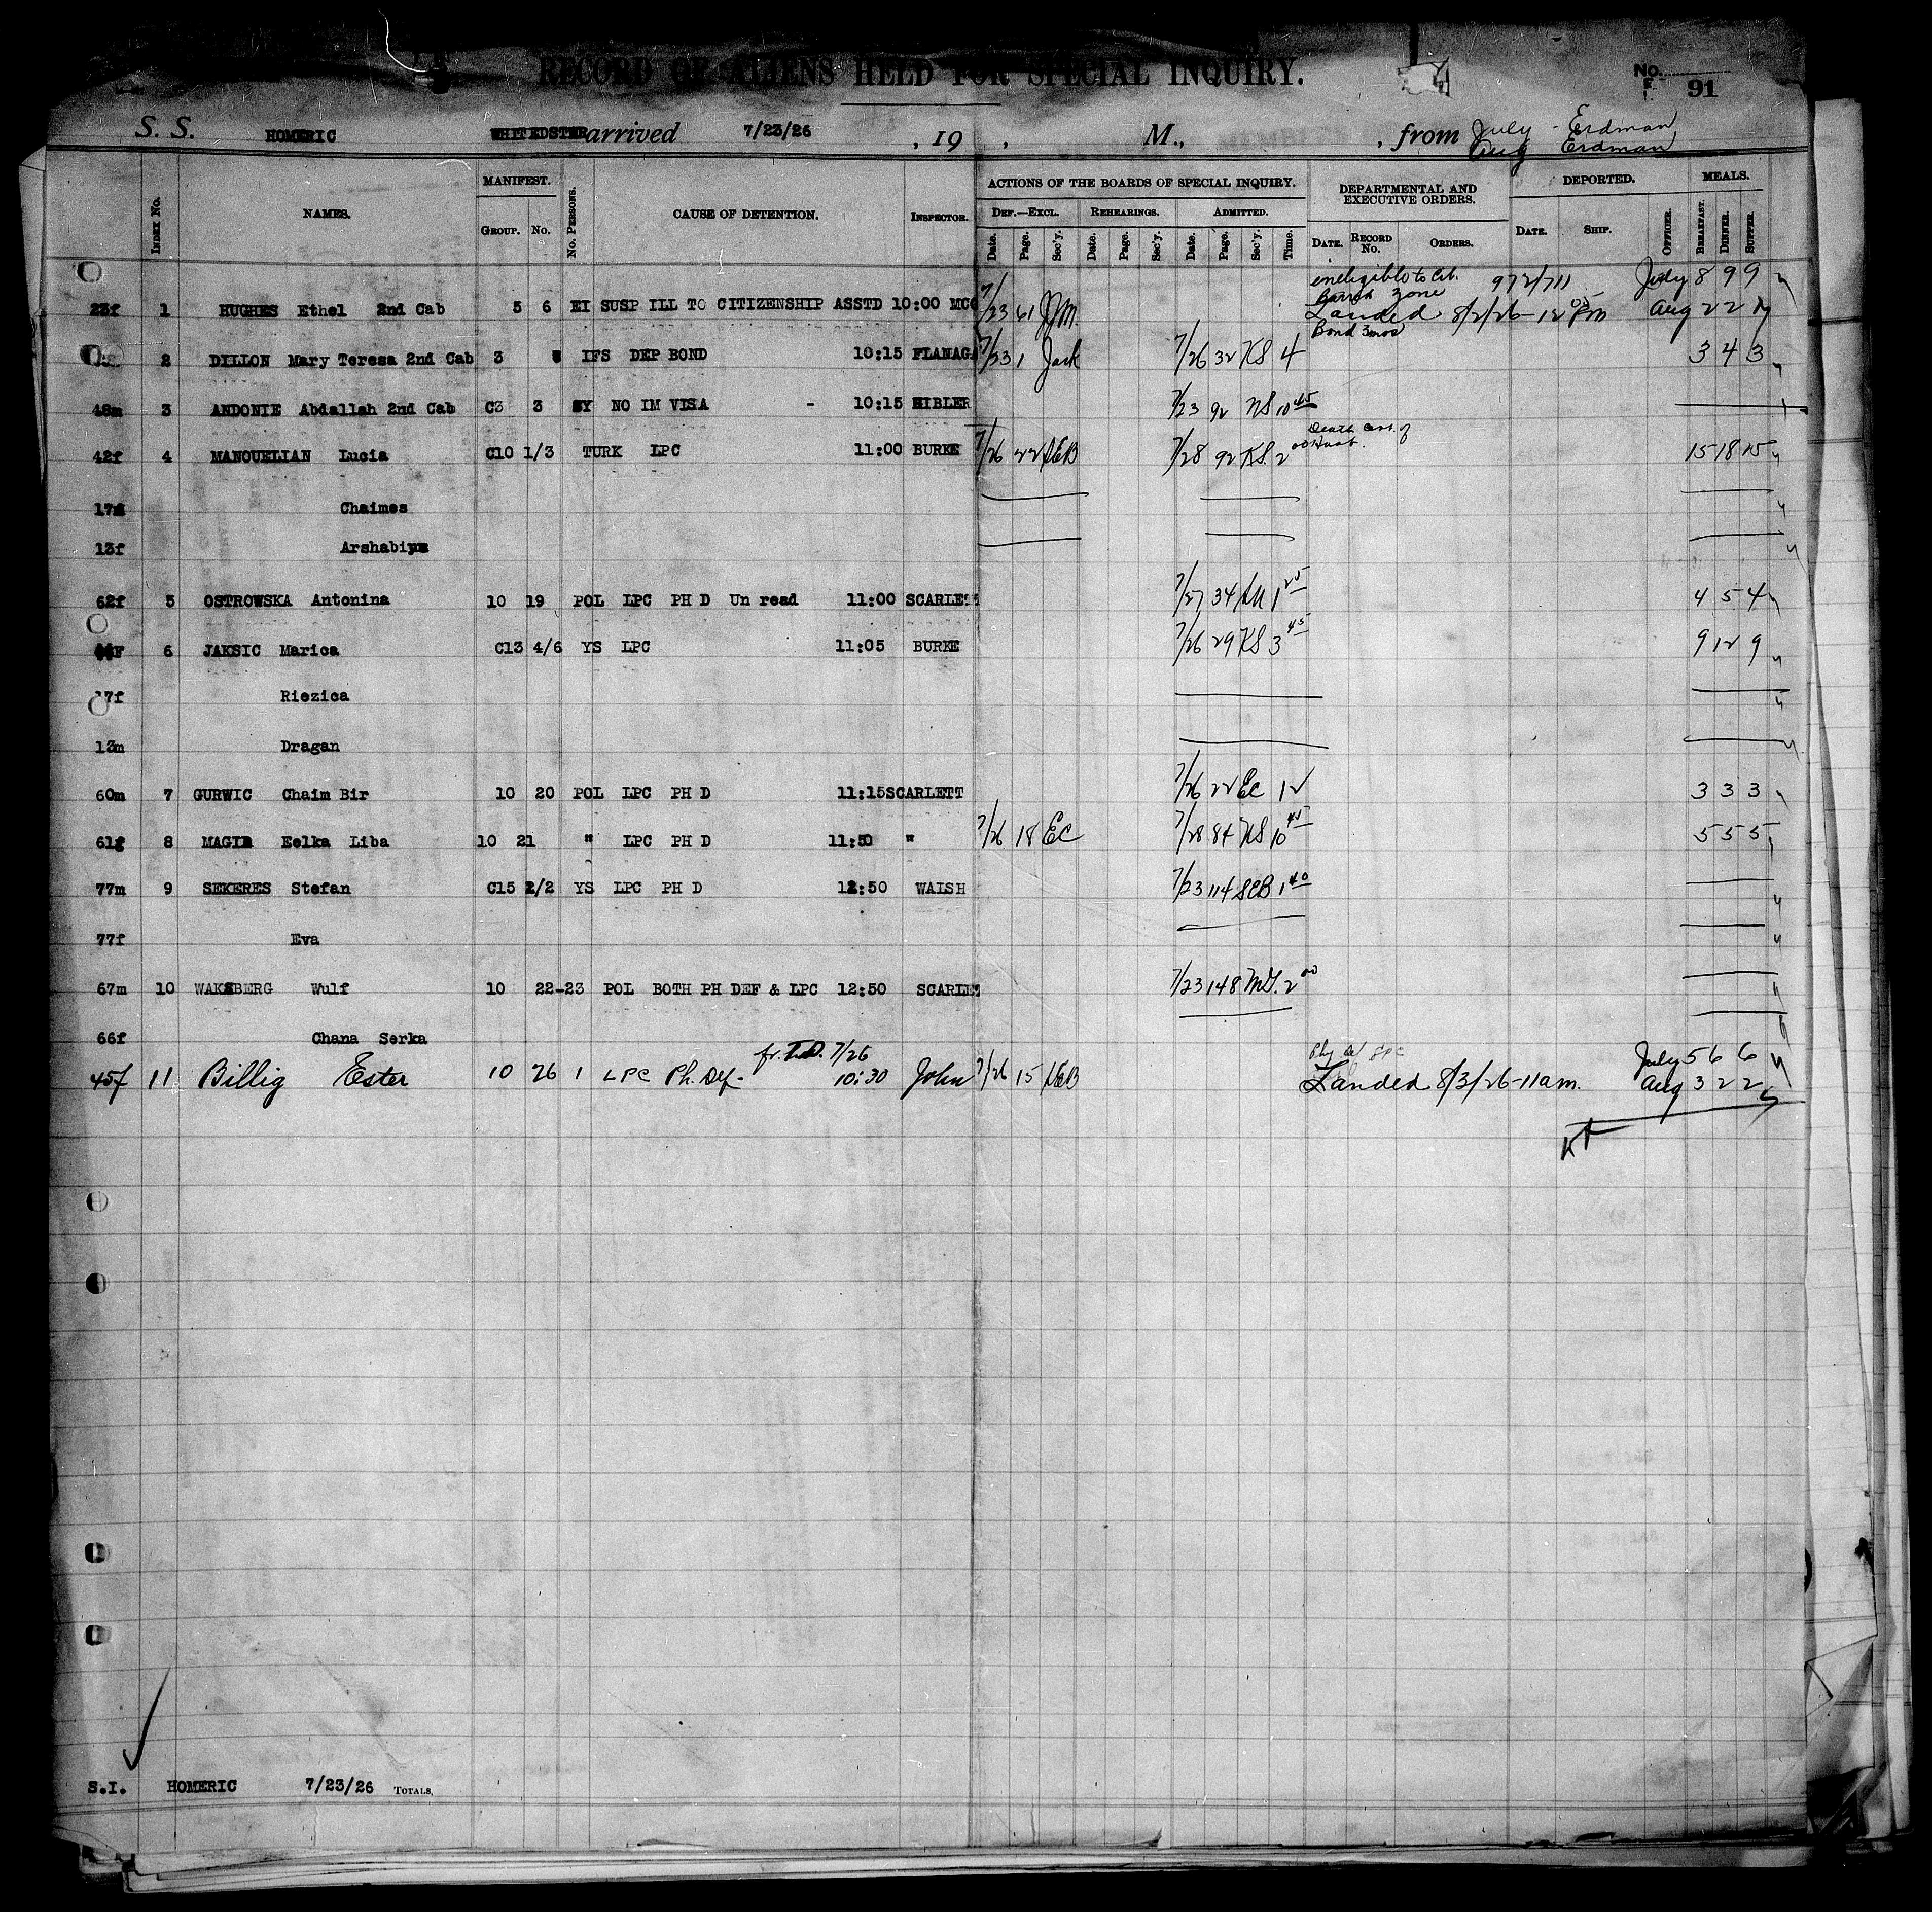 RECORD OF ALIENS HELD FOR SPECIAL INQUIRY.
No. 91
S. S. HOMERIC arrived 7/23/26 , 19 , M., , from July - Erdman
Aug Erdman
MANIFEST. ACTIONS OF THE BOARDS OF SPECIAL INQUIRY. DEPARTMENTAL AND EXECUTIVE ORDERS. DEPORTED. MEALS.
Index No. NAMES. Group. No. No. Persons. CAUSE OF DETENTION. Inspector. Def.—Excl. Rehearings. Admitted.
Date. Page. Sec'y. Date. Page. Sec'y. Date. Page. Sec'y. Time. Date. Record No. Orders. Date. Ship. Officer. Breakfast. Dinner. Supper.
ineligible to Cit. 972/711 July 8 9 9
Barred zone
23f 1 HUGHES Ethel 2nd Cab 5 6 EI SUSP ILL TO CITIZENSHIP ASSTD 10:00 7/23 61 Landed 8/2/26- Aug 2 2 1
Bond 3mos
2 DILLON Mary Teresa 2nd Cab 3 IFS DEP BOND 10:15 FLANAGA 7/23 1 Jack 7/26 32 KS 4 3 4 3
48m 3 ANDONIE Abdallah 2nd Cab C3 3 SY NO IM VISA - 10:15 HIBLER 7/23 92 NS 10 45
42f 4 MANOUELIAN Lucia C10 1/3 TURK LPC 11:00 BURKE 7/26 22 SEB 7/28 92 KS. 2 00 15 18 15
17 Chaimes
13f Arshabi
62f 5 OSTROWSKA Antonina 10 19 POL LPC PH D Un read 11:00 SCARLETT 7/27 34 1 25 4 5 4
6 JAKSIC Marica C13 4/6 YS LPC 11:05 BURKE 7/26 29 KS 3 45 9 12 9
17f Riezica
13m Dragan
60m 7 GURWIC Chaim Bir 10 20 POL LPC PH D 11:15 SCARLETT 7/26 22 EC 12 3 3 3
61f 8 Eelka Liba 10 21 " LPC PH D 11:50 " 7/26 18 EC 7/28 84 KS 10 45 5 5 5
77m 9 SEKERES Stefan C15 1/2 YS LPC PH D 12:50 WALSH 7/23 114 SEB 1 40
77f Eva
67m 10 WAKSBERG Wulf 10 22-23 POL BOTH PH DEF & LPC 12:50 SCARLE 7/23 148 2 00
66f Chana Serka
fr. T.D. 7/26 July 5 6 6
45f 11 Billig Ester 10 26 1 LPC Ph. Def- 10:30 John 7/26 15 SEB Landed 8/3/26-11am. Aug 3 2 2
S.I. HOMERIC 7/23/26 Totals.